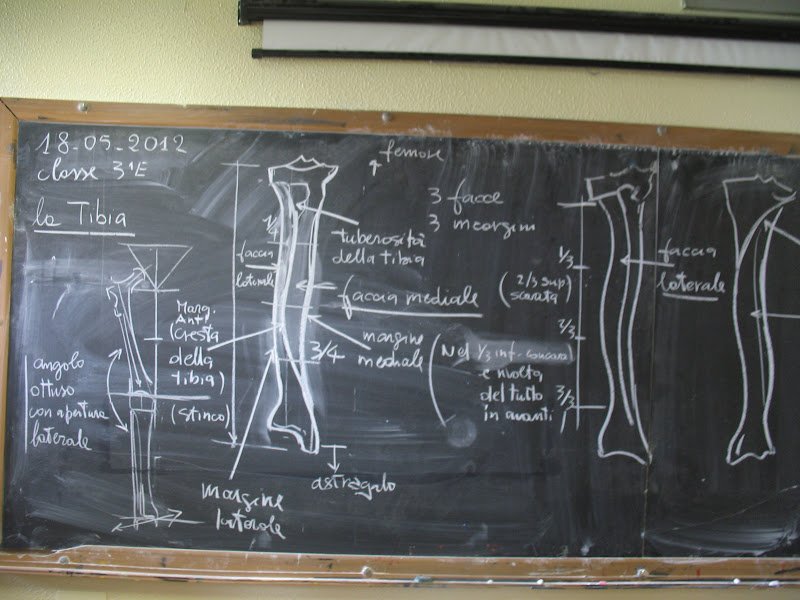 18-05-2012
classe 3ªE
la Tibia
femore
3 facce
3 margini
tuberosità
della tibia
1/4
faccia
laterale
faccia mediale
(2/3 sup.
scavata)
Marg.
Ant.
(cresta
della
tibia)
(stinco)
3/4
margine
mediale
(Nel 1/3 inf. concava
e rivolta
del tutto
in avanti
angolo
ottuso
con apertura
laterale
margine
laterale
astragalo
1/3
2/3
3/3
faccia
laterale